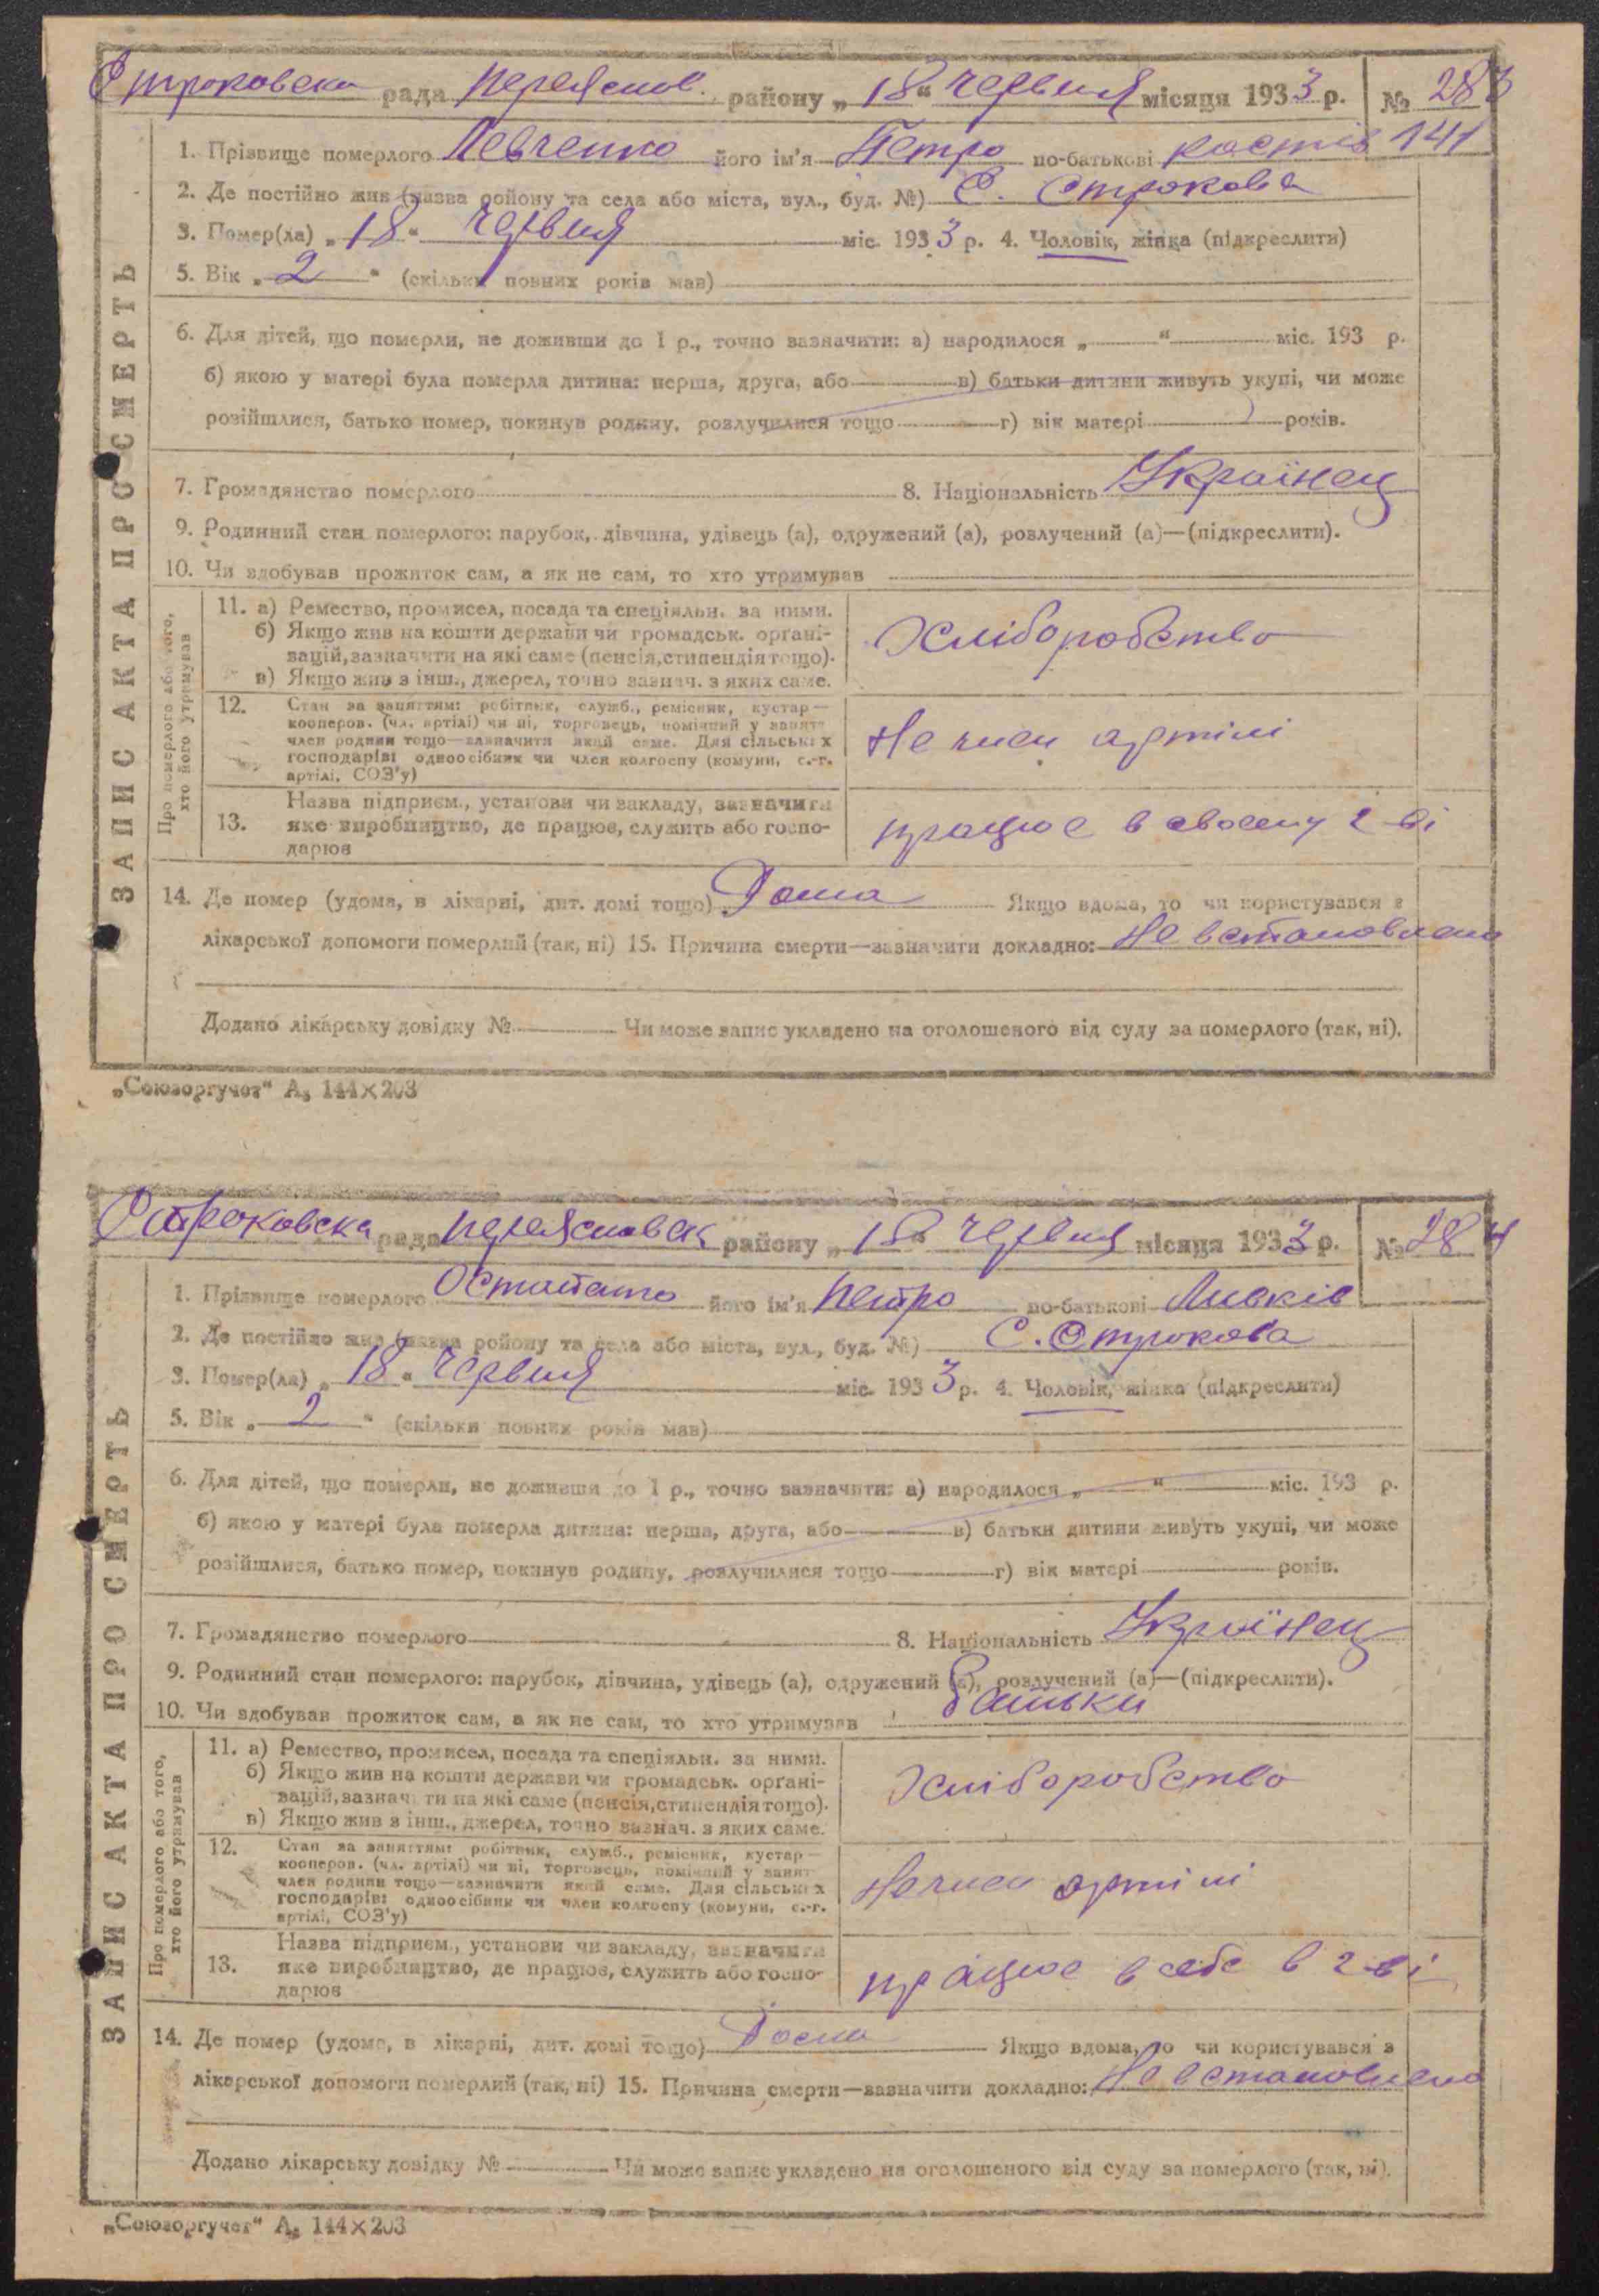 Строковска рада Переяслов. району „18“ червня місяця 1933 р. № 283
1. Прізвище померлого Левченко його ім'я Петро по-батькові Костів 141
2. Де постійно жив (назва ройону та села або міста, вул., буд. №) С. Строкова
3. Помер(ла) „18“ червня міс. 1933 р. 4. Чоловік, жінка (підкреслити)
5. Вік „2“ (скільки повних років мав)
6. Для дітей, що померли, не доживши до 1 р., точно зазначити: а) народилося „ “ міс. 193 р.
б) якою у матері була померла дитина: перша, друга, або в) батьки дитини живуть укупі, чи може
розійшлися, батько помер, покинув родину, розлучилися тощо г) вік матері років.
7. Громадянство померлого 8. Національність Українец
9. Родинний стан померлого: парубок, дівчина, удівець (а), одружений (а), розлучений (а)—(підкреслити).
10. Чи здобував прожиток сам, а як не сам, то хто утримував
ЗАПИС АКТА ПРО СМЕРТЬ
Про померлого або того,
хто його утримував
11. а) Ремество, промисел, посада та спеціяльн. за ними.
б) Якщо жив на кошти держави чи громадськ. орґані-
зацій, зазначити на які саме (пенсія, стипендія тощо).
в) Якщо жив з інш., джерел, точно зазнач. з яких саме.
Хліборобство
12. Стан за заняттям: робітник, служб., ремісник, кустар—
кооперов. (чл. артілі) чи ні, торговець, помічний у занят
член родини тощо—зазначити який саме. Для сільських
господарів: одноосібник чи член колгоспу (комуни, с.-г.
артілі, СОЗ'у)
Не член артілі
13. Назва підприєм., установи чи закладу, зазначити
яке виробництво, де працює, служить або госпо-
дарює
працює в своєму г-ві
14. Де помер (удома, в лікарні, дит. домі тощо) Дома Якщо вдома, то чи користувався з
лікарської допомоги померлий (так, ні) 15. Причина смерти—зазначити докладно: Не встановлено
Додано лікарську довідку № Чи може запис укладено на оголошеного від суду за померлого (так, ні).
„Союзоргучет“ А5 144×203
Строковска рада Переяславск району „18“ червня місяця 1933 р. № 284
1. Прізвище померлого його ім'я Петро по-батькові
2. Де постійно жив (назва ройону та села або міста, вул., буд. №) С. Строкова
3. Помер(ла) „18“ червня міс. 1933 р. 4. Чоловік, жінка (підкреслити)
5. Вік „2“ (скільки повних років мав)
6. Для дітей, що померли, не доживши до 1 р., точно зазначити: а) народилося „ “ міс. 193 р.
б) якою у матері була померла дитина: перша, друга, або в) батьки дитини живуть укупі, чи може
розійшлися, батько помер, покинув родину, розлучилися тощо г) вік матері років.
7. Громадянство померлого 8. Національність Українец
9. Родинний стан померлого: парубок, дівчина, удівець (а), одружений (а), розлучений (а)—(підкреслити).
10. Чи здобував прожиток сам, а як не сам, то хто утримував Батьки
ЗАПИС АКТА ПРО СМЕРТЬ
Про померлого або того,
хто його утримував
11. а) Ремество, промисел, посада та спеціяльн. за ними.
б) Якщо жив на кошти держави чи громадськ. орґані-
зацій, зазначити на які саме (пенсія, стипендія тощо).
в) Якщо жив з інш., джерел, точно зазнач. з яких саме.
Хліборобство
12. Стан за заняттям: робітник, служб., ремісник, кустар—
кооперов. (чл. артілі) чи ні, торговець, помічний у занят
член родини тощо—зазначити який саме. Для сільських
господарів: одноосібник чи член колгоспу (комуни, с.-г.
артілі, СОЗ'у)
Не член артілі
13. Назва підприєм., установи чи закладу, зазначити
яке виробництво, де працює, служить або госпо-
дарює
працює в себе в г-ві
14. Де помер (удома, в лікарні, дит. домі тощо) Дома Якщо вдома, то чи користувався з
лікарської допомоги померлий (так, ні) 15. Причина смерти—зазначити докладно: Не встановлено
Додано лікарську довідку № Чи може запис укладено на оголошеного від суду за померлого (так, ні).
„Союзоргучет“ А5 144×203